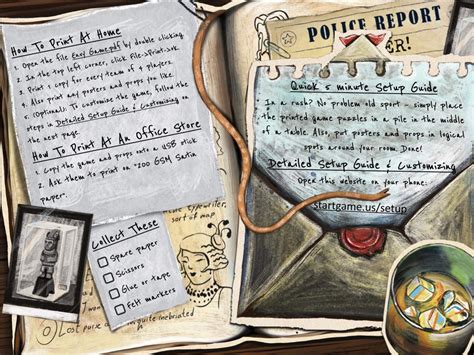 How To Print At Home
1. Open the file Easy Game.pdf by double clicking.
2. In the top left corner, click File->Print->ok.
3. Print 1 copy for every team of 4 players.
4. Also print any posters and props you like.
5. (Optional). To customize the game, follow the
steps in Detailed Setup Guide & Customizing on
the next page.
How To Print At An Office Store
1. Copy the game and props onto a USB stick
2. Ask them to print on "200 GSM Satin
paper.
typewriter,
sort of map
Collect These
Spare paper
Scissors
Glue or tape
Felt markers
Lost purse
inebriated
POLICE REPORT
ER!
Quick 5 minute Setup Guide
In a rush? No problem old sport - simply place
the printed game puzzles in a pile in the middle
of a table. Also, put posters and props in logical
spots around your room. Done!
Detailed Setup Guide & Customizing
Open this website on your phone:
startgame.us/setup